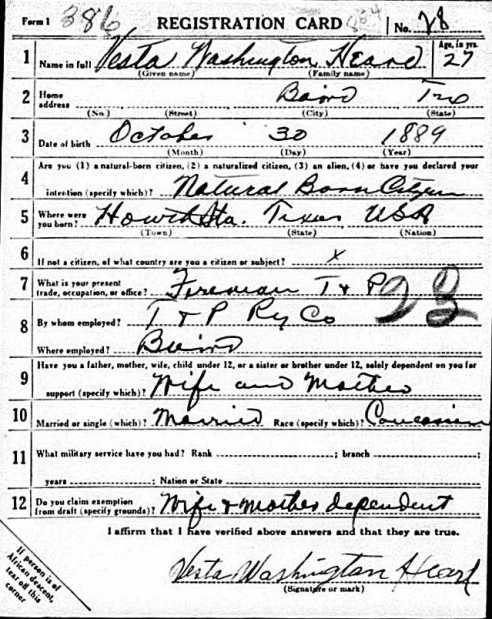 Form 1 386 REGISTRATION CARD No. 28
1 Name in full Vesta Washington Heard Age, in yrs. 27
(Given name) (Family name)
2 Home address Baird Tex
(No.) (Street) (City) (State)
3 Date of birth October 30 1889
(Month) (Day) (Year)
4 Are you (1) a natural-born citizen, (2) a naturalized citizen, (3) an alien, (4) or have you declared your
intention (specify which)? Natural Born Citizen
5 Where were you born? Howth Sta. Texas USA
(Town) (State) (Nation)
6 If not a citizen, of what country are you a citizen or subject? x
7 What is your present trade, occupation, or office? Fireman T & P 23
8 By whom employed? T & P Ry Co
Where employed? Baird
9 Have you a father, mother, wife, child under 12, or a sister or brother under 12, solely dependent on you for
support (specify which)? Wife and Mother
10 Married or single (which)? Married Race (specify which)? Caucasian
11 What military service have you had? Rank ; branch ;
years ; Nation or State
12 Do you claim exemption from draft (specify grounds)? Wife & mother dependent
I affirm that I have verified above answers and that they are true.
Vesta Washington Heard
(Signature or mark)
If person is of
African descent,
tear off this
corner